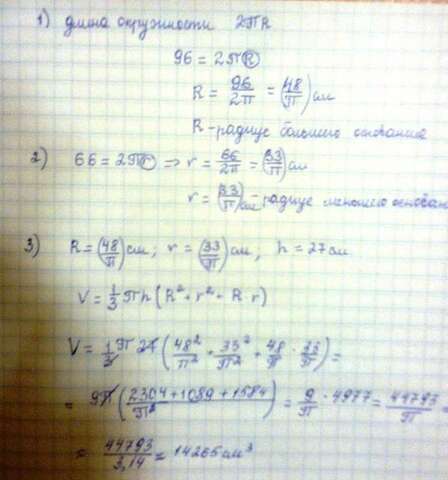 1) длина окружности 2πR
96 = 2πR
R = 96/2π = (48/π) см
R – радиус большего основания
2) 66 = 2πr ⇒ r = 66/2π = (33/π) см
r = (33/π) см – радиус меньшего основан
3) R = (48/π) см; r = (33/π) см; h = 27 см
V = 1/3 πh (R² + r² + R · r)
V = 1/3 π 27 (48²/π² + 33²/π² + 48/π · 33/π) =
= 9π (2304 + 1089 + 1584/π²) = 9/π · 4977 = 44793/π
= 44793/3,14 = 14265 см³